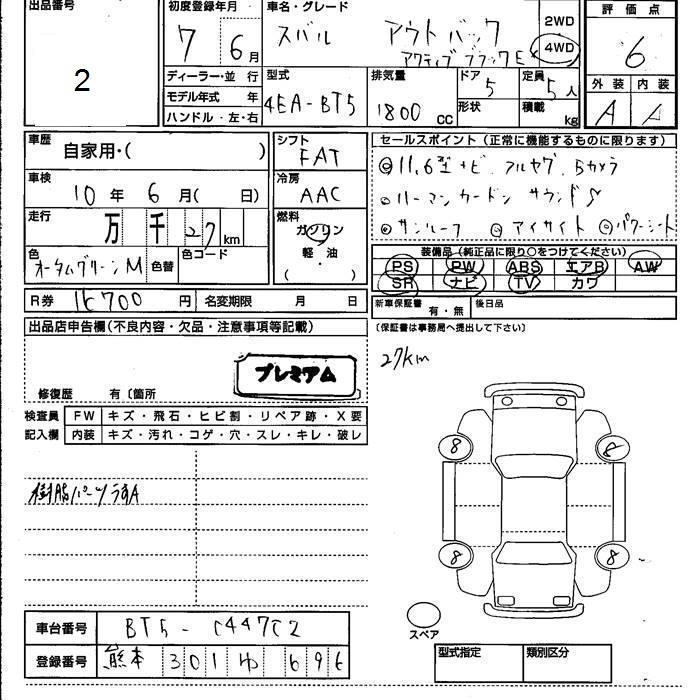 出品番号 2
初度登録年月 7年 6月
車名・グレード スバル アウトバック
アクティブブラックE
2WD
4WD
評価点 6
外装 A 内装 A
ディーラー・並行
モデル年式 年
ハンドル・左・右
型式 4EA-BT5
排気量 1800 CC
ドア 5
形状
定員 5人
積載 kg
車歴 自家用・( )
車検 10年 6月( 日)
走行 万 千 27 km
色 オータムグリーンM 色替 色コード
シフト FAT
冷房 AAC
燃料 ガソリン
軽・油
( )
セールスポイント(正常に機能するものに限ります)
◎11.6型ナビ、フルセグ、Bカメラ
◎ハーマンカードンサウンドS
◎サンルーフ ◎アイサイト ◎パワーシート
装備品(純正品に限り○をつけてください)
PS PW ABS エアB AW
SR ナビ TV カワ
R券 16700円 名変期限 月 日
新車保証書 有・無 後日品
(保証書は事務局へ提出して下さい)
出品店申告欄(不良内容・欠品・注意事項等記載)
プレミアム
修復歴 有〔箇所
27km
検査員 FW キズ・飛石・ヒビ割・リペア跡・X要
記入欄 内装 キズ・汚れ・コゲ・穴・スレ・キレ・破レ
樹脂パーツうすA
8 8
8 8
スペア
車台番号 BT5-C447C2
登録番号 熊本 301 ゆ 696
型式指定 類別区分